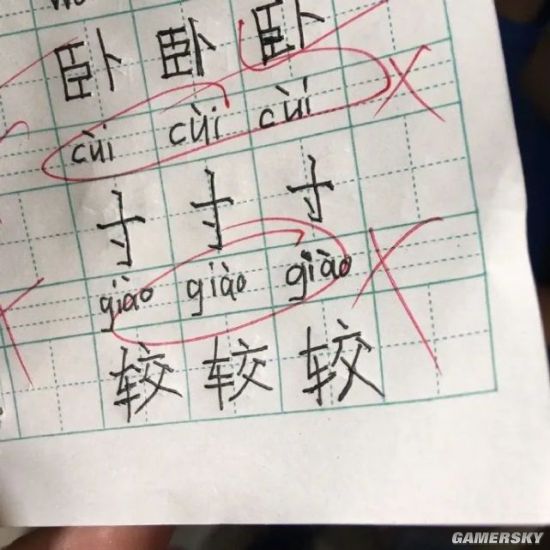 卧 卧 卧
cùi cùi cùi
寸 寸 寸
giào giào giào
较 较 较
GAMERSKY